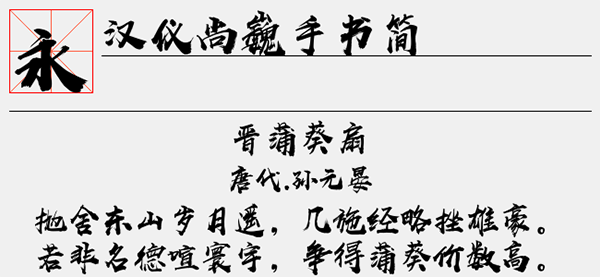 永
汉仪尚巍手书简
晋蒲葵扇
唐代.孙元晏
抛舍东山岁月遥，几施经略挫雄豪。
若非名德喧寰宇，争得蒲葵价数高。